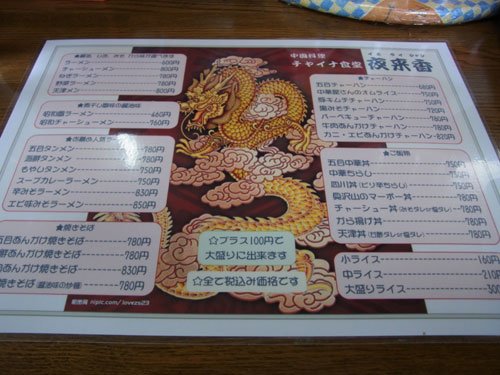 中国料理
チャイナ食堂
イエ ライ シャン
夜来香
ラーメン 600円
チャーシューメン 800円
ねぎラーメン 780円
野菜ラーメン 780円
天津メン 800円
昭和麺ラーメン 460円
昭和チャーシューメン 760円
五目タンメン 780円
海鮮タンメン 780円
もやしタンメン 750円
スープカレーラーメン 750円
辛みそラーメン 830円
エビ味みそラーメン 850円
★焼きそば
五目あんかけ焼きそば 780円
海鮮あんかけ焼きそば 780円
肉あんかけ焼きそば 830円
焼きそば(醤油味の炒麺) 780円
★チャーハン
五目チャーハン 680円
中華屋さんのオムライス 750円
豚キムチチャーハン 750円
黒みそチャーハン
バーベキューチャーハン
牛肉あんかけチャーハン
エビあんかけチャーハン 820円
★ご飯物
五目中華丼 750円
中華ちらし 750円
四川丼(ピリ辛ちらし) 750円
奥沢山のマーボー丼
チャーシュー丼
から揚げ丼
天津丼
小ライス 160円
中ライス 210
大盛りライス
☆プラス100円で
大盛りに出来ます
☆全て税込み価格です
nipic.com/lovezsl23